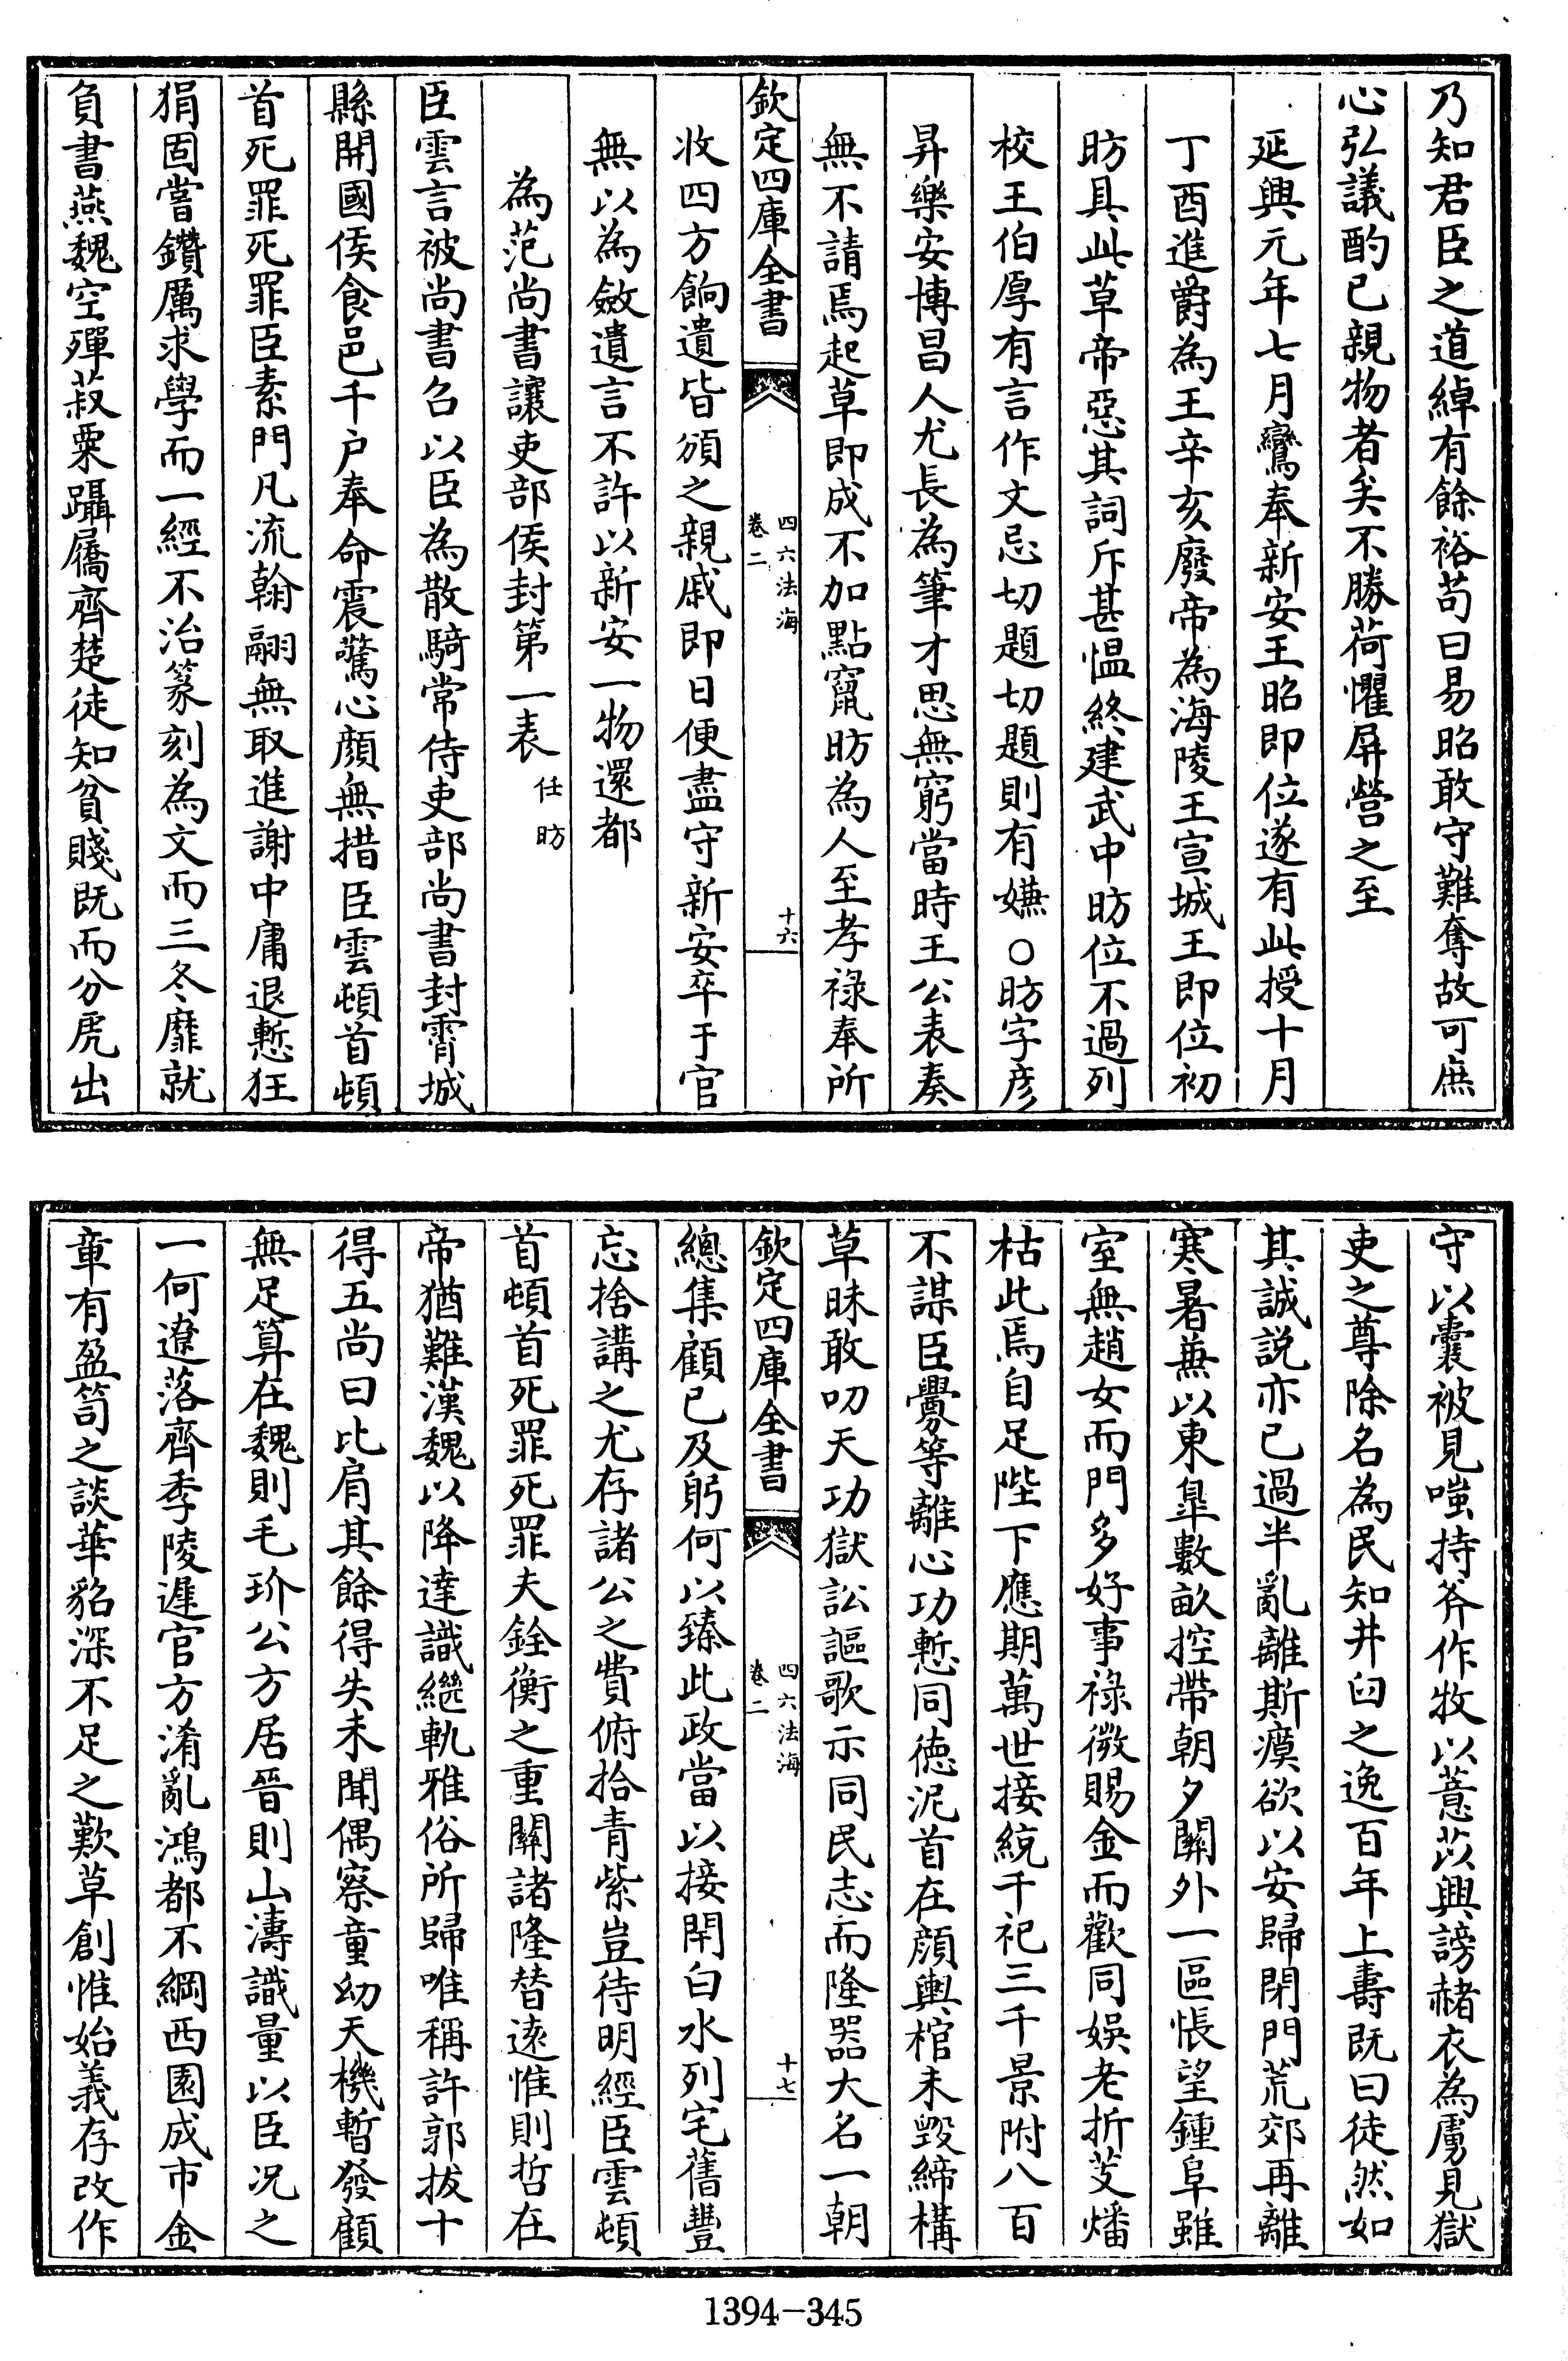 乃知君臣之道綽有餘裕苟曰易昭敢守難奪故可庶
心弘議酌已親物者矣不勝荷懼屏營之至
延興元年七月鸞奉新安王昭即位遂有此授十月
丁酉進爵為王辛亥廢帝為海陵王宣城王即位初
昉具此草帝惡其詞斥甚愠終建武中昉位不過列
校王伯厚有言作文忌切題切題則有嫌○昉字彦
昇樂安博昌人尤長為筆才思無窮當時王公表奏
無不請焉起草即成不加點竄昉為人至孝禄奉所
欽定四庫全書
四六法海
卷二
十六
收四方餉遺皆頒之親戚即日便盡守新安卒于官
無以為斂遺言不許以新安一物還都
為范尚書讓吏部侯封第一表
任昉
臣雲言被尚書召以臣為散騎常侍吏部尚書封霄城
縣開國侯食邑千户奉命震驚心顔無措臣雲頓首頓
首死罪死罪臣素門凡流翰翮無取進謝中庸退慙狂
狷固嘗鑽厲求學而一經不治篆刻為文而三冬靡就
負書燕魏空殫菽粟躡屩齊楚徒知貧賤既而分虎出
守以囊被見嗤持斧作牧以薏苡興謗赭衣為虜見獄
吏之尊除名為民知井臼之逸百年上壽既曰徒然如
其誠説亦已過半亂離斯瘼欲以安歸閉門荒郊再離
寒暑兼以東臯數畝控帶朝夕關外一區悵望鍾阜雖
室無趙女而門多好事禄微賜金而歡同娱老折芰燔
枯此焉自足陛下應期萬世接統千祀三千景附八百
不謀臣釁等離心功慙同徳泥首在顔輿棺未毁締構
草昧敢叨天功獄訟謳歌示同民志而隆器大名一朝
欽定四庫全書
四六法海
卷二
十七
總集顧已及躬何以臻此政當以接閈白水列宅舊豐
忘捨講之尤存諸公之費俯拾青紫豈待明經臣雲頓
首頓首死罪死罪夫銓衡之重關諸隆替逺惟則哲在
帝猶難漢魏以降達識繼軌雅俗所歸唯稱許郭拔十
得五尚曰比肩其餘得失未聞偶察童幼天機暫發顧
無足算在魏則毛玠公方居晉則山濤識量以臣况之
一何遼落齊季陵遲官方淆亂鴻都不綱西園成市金
章有盈笥之談華貂深不足之歎草創惟始義存改作
1394-345